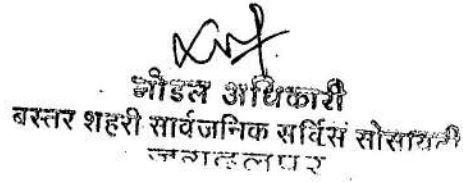 नोडल अधिकारी
बस्तर शहरी सार्वजनिक सर्विस सोसायटी
जगदलपुर